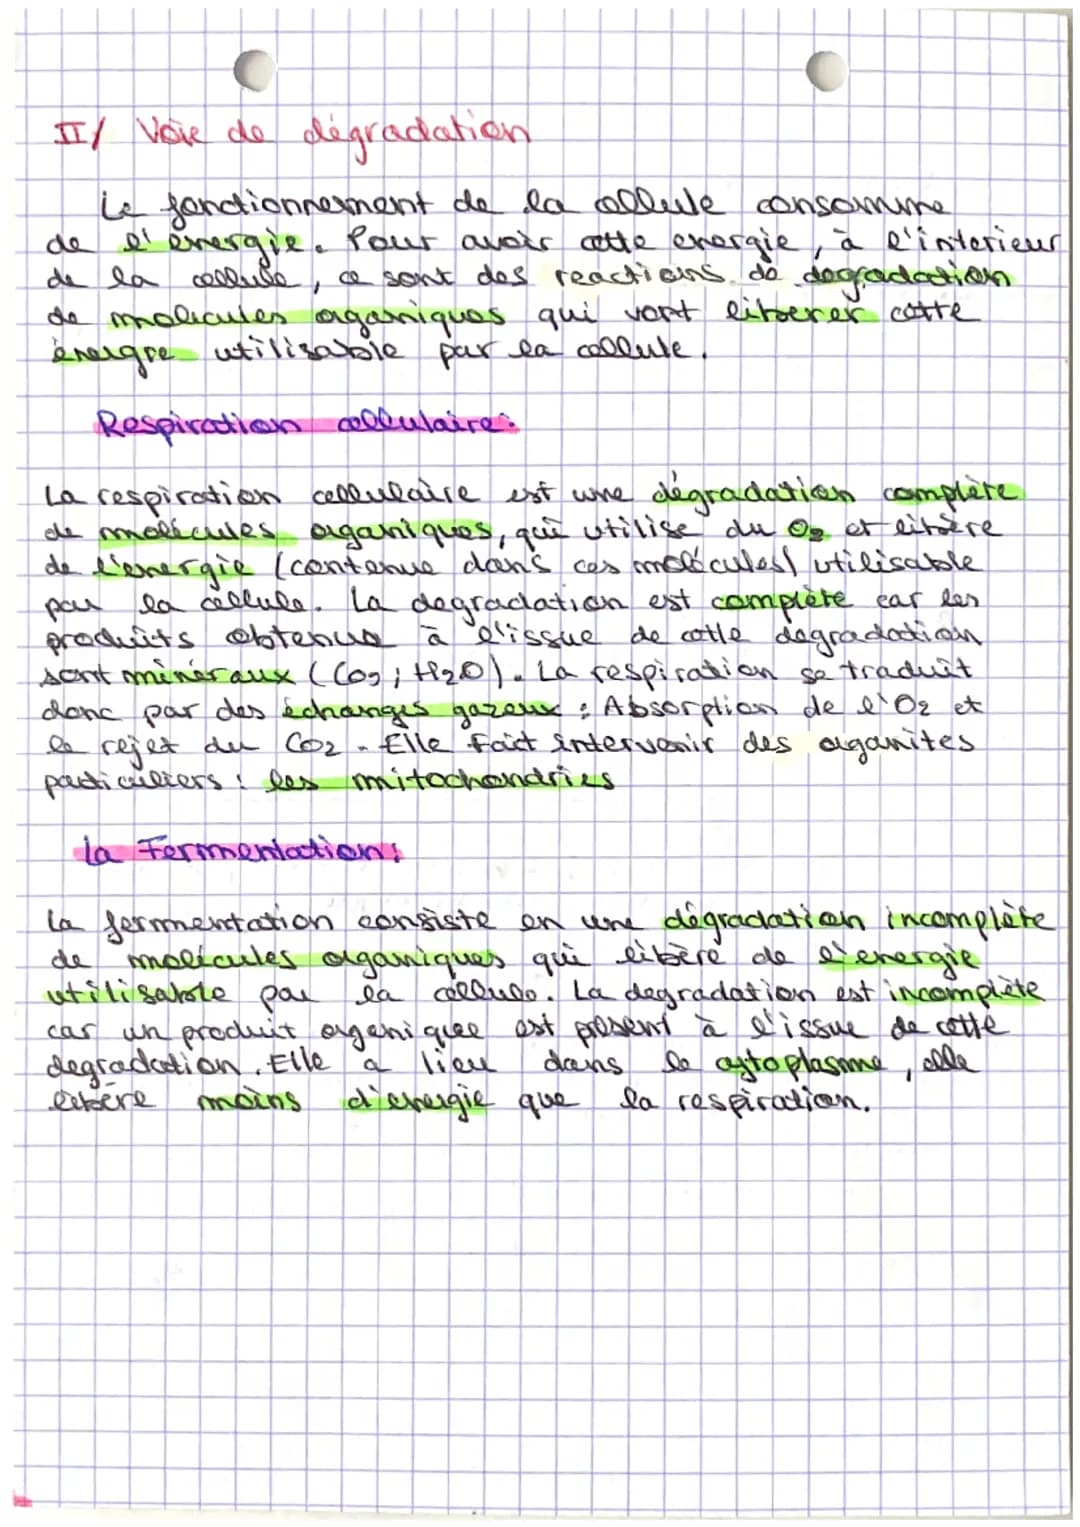 II/ Voie de dégradation
Le fonctionnement de la cellule consomme
de l'énergie. Pour avoir cette energie, à l'interieur
de la cellule, ce sont des reactions de degradation
de molecules organiques qui vont liberer cette
énergie utilisable par la cellule.
Respiration cellulaire:
La respiration cellulaire est une dégradation complète
de molécules organiques, qui utilise du O2 et libère
de l'energie (contenue dans ces molécules) utilisable
par la cellule. La degradation est complète car les
produits obtenus à l'issue de cette degradation
sont minéraux (CO2; H2O). La respiration se traduit
donc par des échanges gazeux : Absorption de l'O2 et
le rejet du CO2. Elle fait intervenir des organites
particuliers : les mitochondries
La Fermentation:
La fermentation consiste en une dégradation incomplète
de molécules organiques qui libère de l'énergie
utilisable par la cellule. La degradation est incomplète
car un produit organique est présent à l'issue de cette
degradation. Elle a lieu dans le cytoplasme, elle
libère moins d'énergie que la respiration.